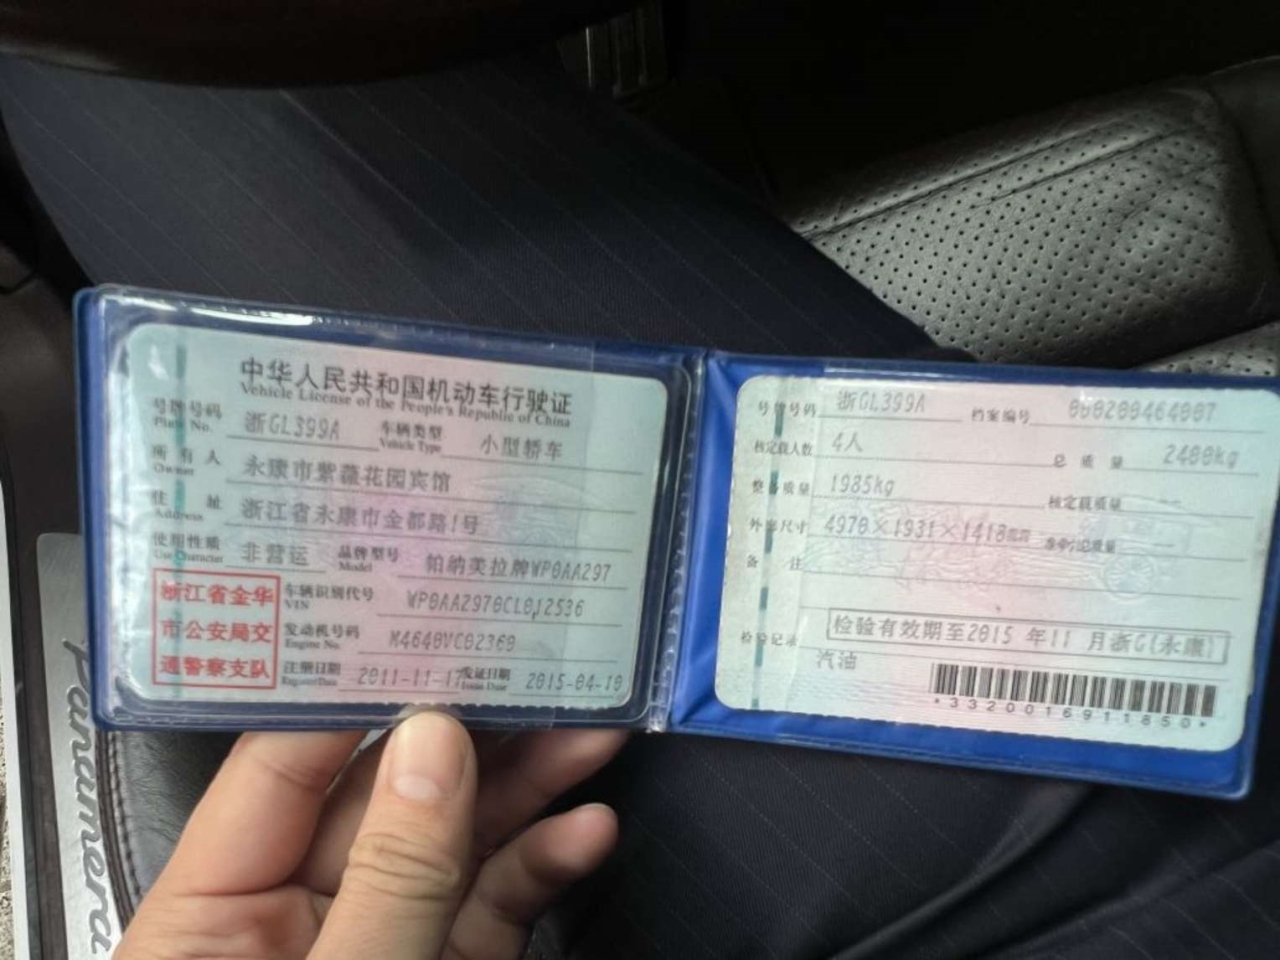 中华人民共和国机动车行驶证
Vehicle License of the People's Republic of China
号牌号码 浙GL399A 车辆类型 小型轿车
Plate No. Vehicle Type
所有人 永康市紫薇花园宾馆
Owner
住址 浙江省永康市金都路1号
Address
使用性质 非营运 品牌型号 帕纳美拉牌WP0AA297
Use Character Model
浙江省金华
市公安局交
通警察支队
车辆识别代号 WP0AA2970CL012536
VIN
发动机号码 M4640VC02360
Engine No.
注册日期 2011-11-17 发证日期 2015-04-10
Register Date Issue Date
号牌号码 浙GL399A 档案编号 000200464007
核定载人数 4人 总质量 2480kg
整备质量 1985kg 核定载质量 --
外廓尺寸 4970×1931×1418
备注
检验记录 检验有效期至2015年11月浙G(永康)
汽油
*3320016911850*
Panamera